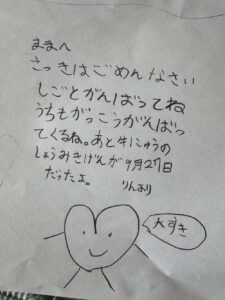 ままへ
さっきはごめんなさい
しごとがんばってね
うちもがっこうがんばっ
てくるね。あと牛にゅうの
しょうみきげんが9月27日
だったよ。
りんより
大すき